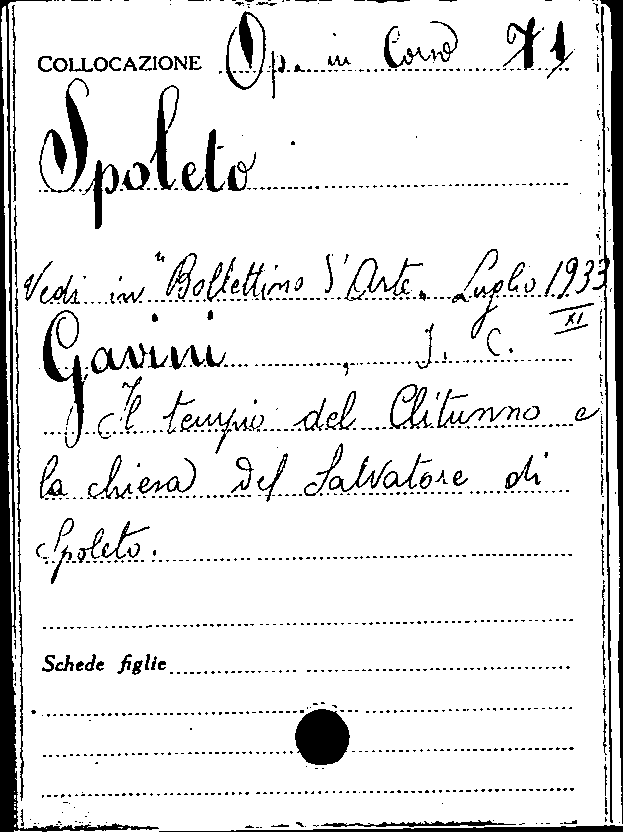 COLLOCAZIONE Op. in Corso 71
Spoleto
Vedi in "Bollettino d'Arte„ Luglio 1933
XI
Gavini, I. C.
Il tempio del Clitunno e
la chiesa del Salvatore di
Spoleto.
Schede figlie